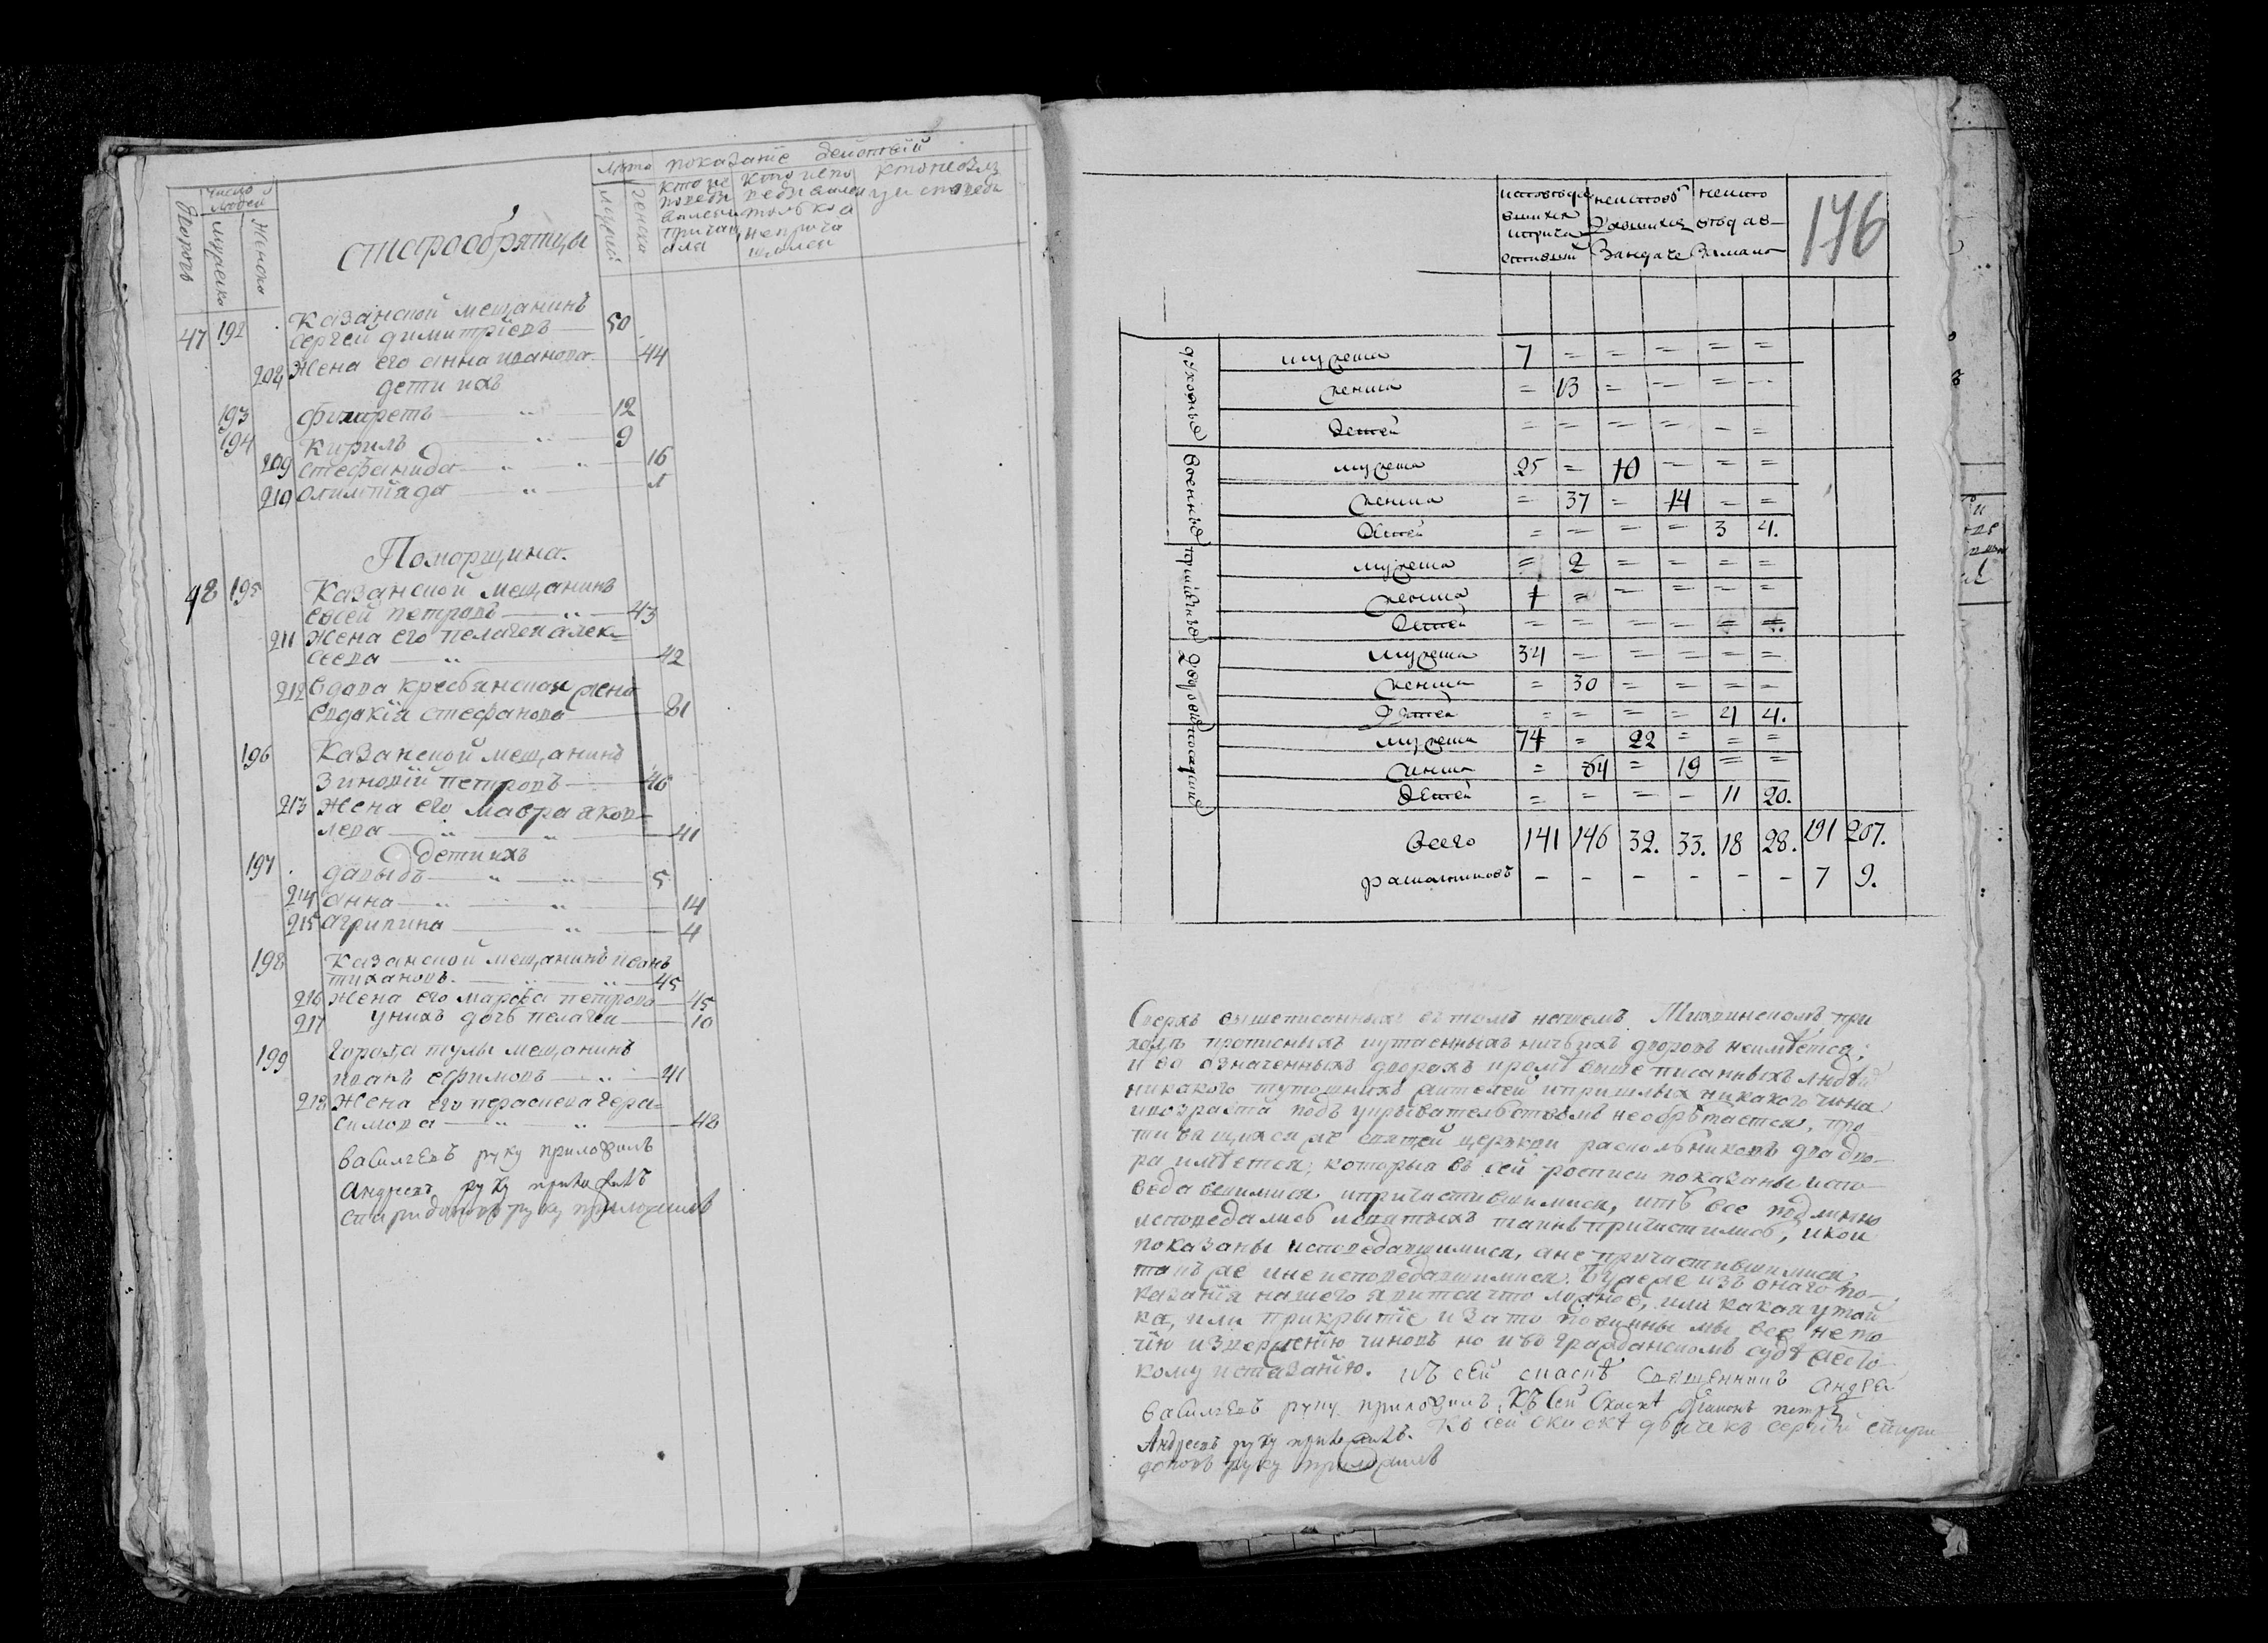 Число людей
Лета показание действий
Дворовъ мужеска женска
мужей женска
кто исповедывался и причащался
кто исповедывался только а не причащался
кто не былъ у исповеди
старообрятцы
Казанской мещанинъ
47 192 Сергей димитріевъ 50
208 Жена его анна иванова 44
дети ихъ
193 филаретъ 12
194 Кирилъ 9
209 стефанида 16
210 олимпіада
Поморщина.
48 195 Казанской мещанинъ
евсей петровъ 43
211 Жена его пелагея алек=
сеева 42
212 вдова кресьянская жена
евдокія стефанова 81
196 Казанской мещанинъ
зиновій петровъ 46
213 Жена его мавра яков=
лева 41
дети ихъ
197 давыдъ 5
214 анна 14
215 агрипина 4
198 Казанской мещанинъ иванъ
тихановъ. 45
216 Жена его марфа петрова 45
217 у нихъ дочь пелагея 10
199 города тулы мещанинъ
иванъ ефимовъ 41
218 Жена его параскева гера=
симова 48
василиевъ руку приложилъ
Андреевъ руку приложилъ
спиридоновъ руку приложилъ
176
духовные мужеска 7 = = = = =
женска = 13 = = = =
детей = = = = = =
военные мужеска 25 = 10 = = =
женска = 37 = 14 = =
детей = = = = 3 4.
мужеска = 2 = = = =
женска 1 = = = = =
детей = = = =
дворовые мужеска 34 = = = = =
женска = 30 = = = =
детей = = = = 4 4.
посацкие мужеска 74 = 22 = = =
женска = 64 = 19 = =
детей = = = = 11 20.
Всего 141 146 32. 33. 18 28. 191 207.
раскольниковъ - - - - - - 7 9.
Сверхъ вышеписанныхъ въ томъ нашемъ Тихвинскомъ при
ходѣ прописныхъ и утаенныхъ ничьихъ дворовъ неимѣется;
и во означенныхъ дворахъ кромѣ вышеписанныхъ людей
никакого тутошнихъ жителей и пришлыхъ никакого чина
и возраста подъ укрывательствомъ необрѣтается, про
тивящихся же святей церькви раскольниковъ два дво
ра имѣется; которыя въ сей росписи показаны испо
ведавшимися и причастившимися, итѣ все подлинно
исповедались и святыхъ таинъ причастились, и кои
показаны исповедавшимися, а не причастившимися.
такъ же и неисповедавшимися. Буде же изъ онаго по-
казанія нашего явится что ложное, или какая утай
ка, или прикрытіе и за то повинны мы все не то
чію изверженію чиновъ но и во гражданскомъ судѣ жесто
кому истязанію. Къ сей скаскѣ Священникъ Андрей
василиевъ руку приложилъ. Къ сей Скаскѣ діаконъ петръ
Андреевъ руку приложилъ. Къ сей скаскѣ дьячекъ сергий спири
доновъ руку приложилъ